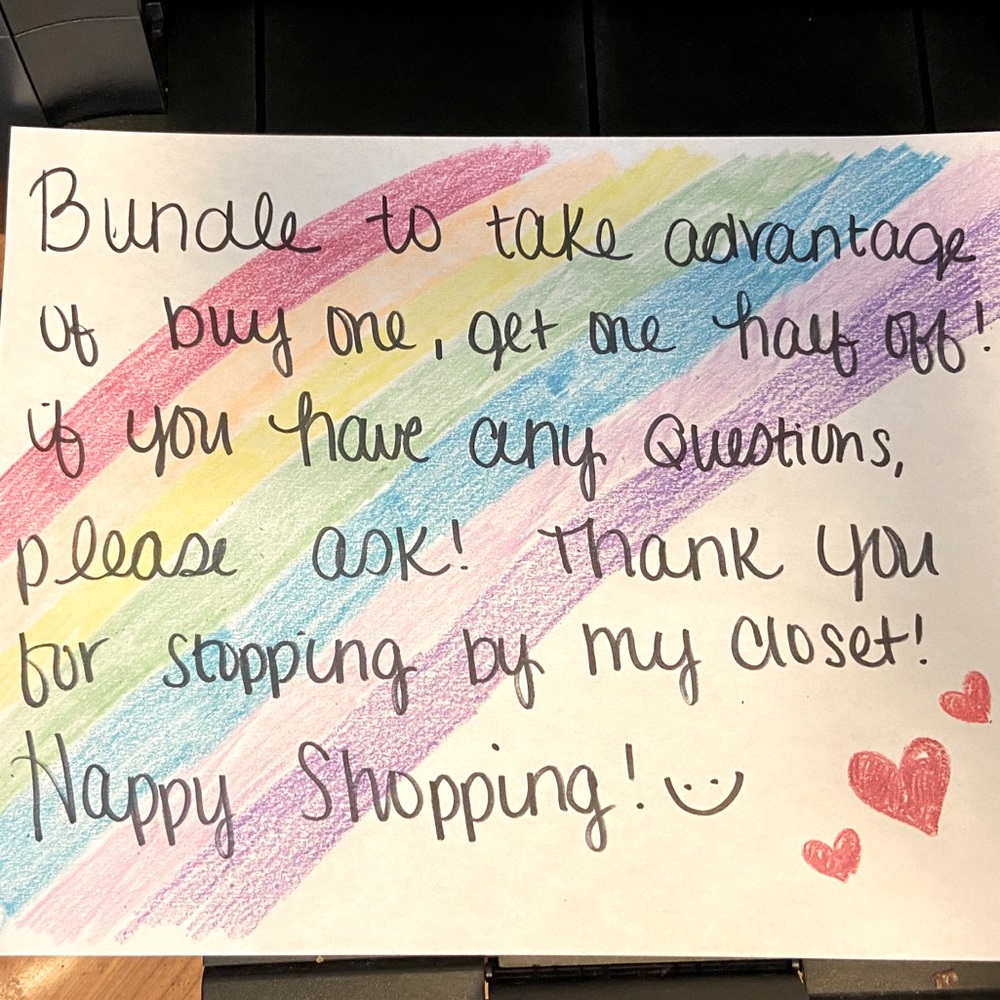 Bundle to take advantage
of buy one, get one half off!
if you have any Questions,
please ask! Thank you
for stopping by my closet!
Happy Shopping!